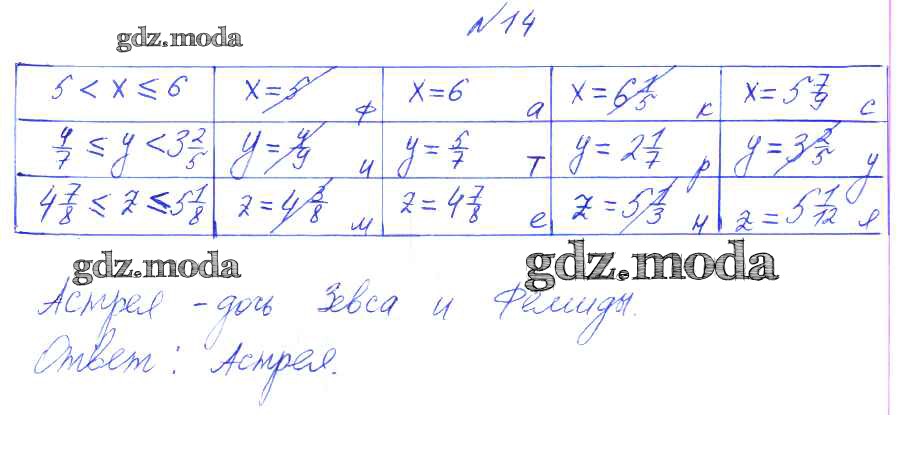 №14
gdz.moda
5 < x ≤ 6 x=5 ф x=6 а x=6 1/5 к x=5 7/9 с
4/7 ≤ y < 3 2/5 y=4/9 и y=5/7 т y=2 1/7 р y=3 2/5 у
4 7/8 ≤ z ≤ 5 1/8 z=4 3/8 м z=4 7/8 е z=5 1/3 н z=5 1/12 я
gdz.moda gdz.moda
Астрея - дочь Зевса и Фемиды.
Ответ: Астрея.